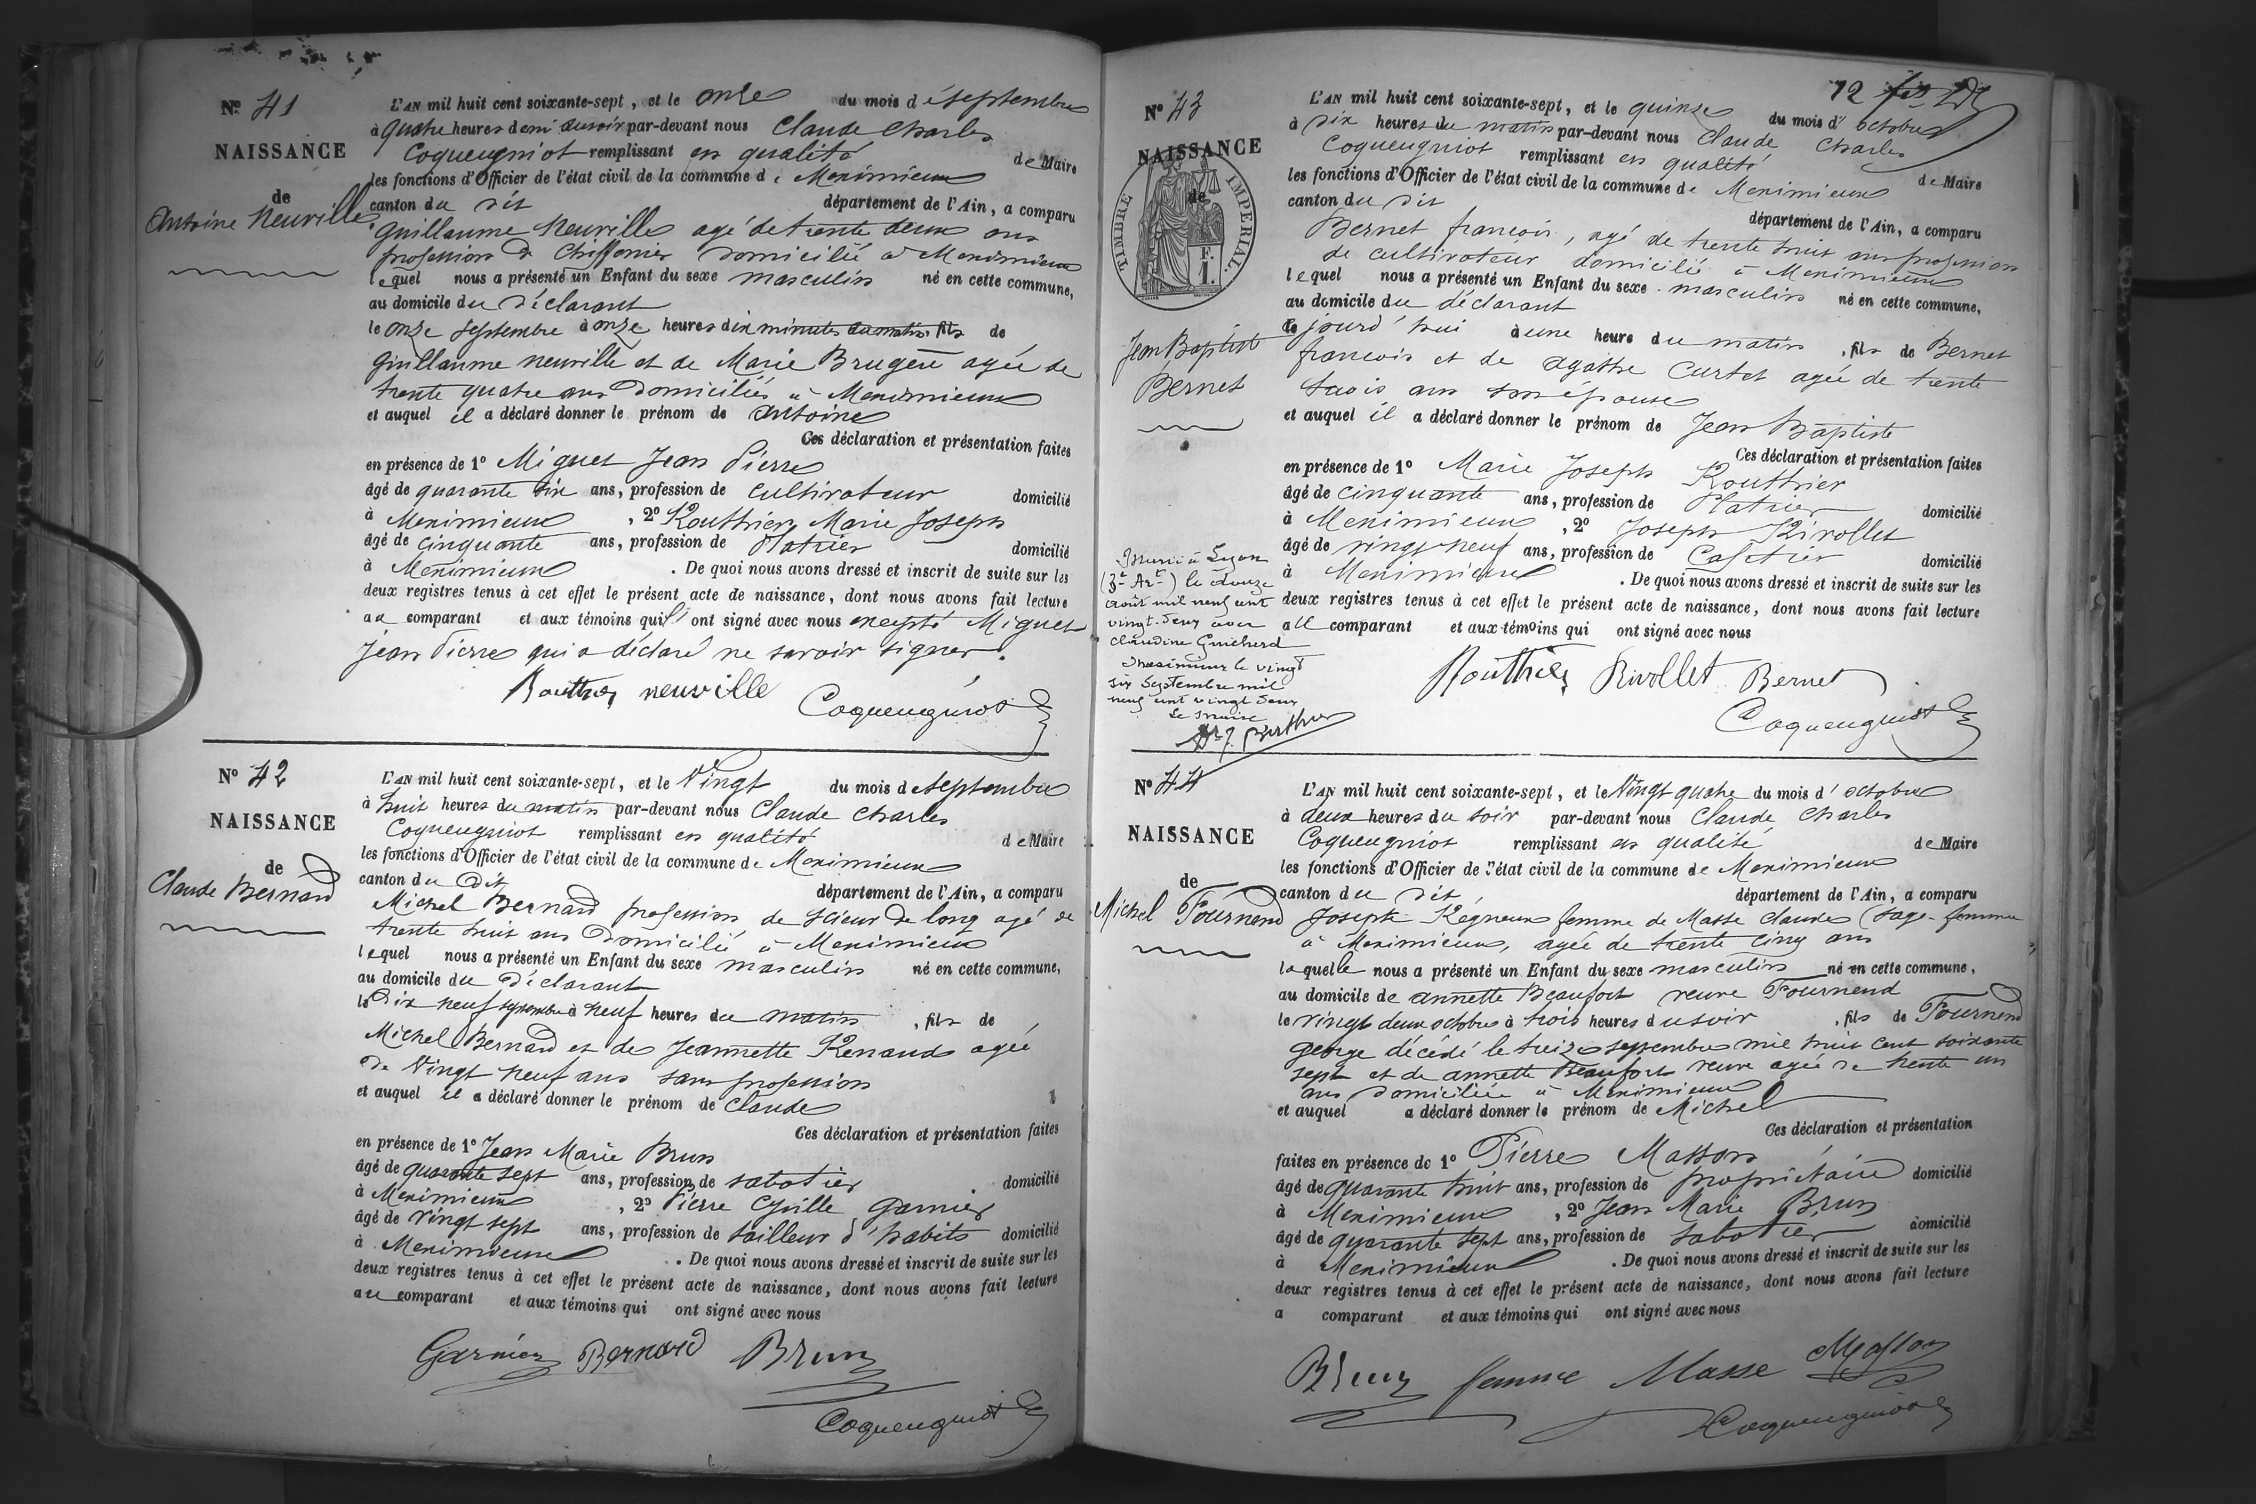 N° 41
NAISSANCE
de
Antoine Neuville
L'AN mil huit cent soixante-sept, et le onze du mois de septembre
à quatre heures demi du soir par-devant nous Claude Charles
Coqueugniot remplissant en qualité de Maire
les fonctions d'Officier de l'état civil de la commune de Meximieux
canton du dit département de l'Ain, a comparu
Guillaume Neuville agé de trente deux ans
profession de Chiffonier domicilié à Meximieux
lequel nous a présenté un Enfant du sexe masculin né en cette commune,
au domicile du déclarant
le onze septembre à onze heures dix minutes du matin, fils de
Guillaume neuville et de Marie Brugere agée de
trente quatre ans domiciliés à Meximieux
et auquel il a déclaré donner le prénom de Antoine
Ces déclaration et présentation faites
en présence de 1° Miguet Jean Pierre
âgé de quarante six ans, profession de cultivateur domicilié
à Meximieux, 2° Routhier Marie Joseph
âgé de cinquante ans, profession de Platrier domicilié
à Meximieux. De quoi nous avons dressé et inscrit de suite sur les
deux registres tenus à cet effet le présent acte de naissance, dont nous avons fait lecture
au comparant et aux témoins qui ont signé avec nous excepté Miguet
Jean Pierre qui a déclaré ne savoir signer.
Routhier neuville Coqueugniot
N° 42
NAISSANCE
de
Claude Bernard
L'AN mil huit cent soixante-sept, et le Vingt du mois de septembre
à huit heures du matin par-devant nous Claude Charles
Coqueugniot remplissant en qualité de Maire
les fonctions d'Officier de l'état civil de la commune de Meximieux
canton du dit département de l'Ain, a comparu
Michel Bernard profession de scieur de long agé de
trente huit ans domicilié à Meximieux
lequel nous a présenté un Enfant du sexe masculin né en cette commune,
au domicile du déclarant
le dix neuf septembre à neuf heures du matin, fils de
Michel Bernard et de Jeannette Renaud agée
de Vingt neuf ans sans profession
et auquel il a déclaré donner le prénom de Claude
Ces déclaration et présentation faites
en présence de 1° Jean Marie Brun
âgé de quarante sept ans, profession de sabotier domicilié
à Meximieux, 2° Pierre Garnier
âgé de vingt sept ans, profession de tailleur d'habits domicilié
à Meximieux. De quoi nous avons dressé et inscrit de suite sur les
deux registres tenus à cet effet le présent acte de naissance, dont nous avons fait lecture
au comparant et aux témoins qui ont signé avec nous
Garnier Bernard Brun
Coqueugniot
12
N° 43
NAISSANCE
de
TIMBRE IMPERIAL.
F.
1.
Jean Baptiste
Bernet
L'AN mil huit cent soixante-sept, et le quinze du mois d'octobre
à dix heures du matin par-devant nous Claude Charles
Coqueugniot remplissant en qualité de Maire
les fonctions d'Officier de l'état civil de la commune de Meximieux
canton du dit département de l'Ain, a comparu
Bernet francois, agé de trente huit ans profession
de cultivateur domicilié à Meximieux
lequel nous a présenté un Enfant du sexe masculin né en cette commune,
au domicile du déclarant
jourd'hui à une heure du matin, fils de Bernet
francois et de Agathe Curtet agée de trente
trois ans son épouse
et auquel il a déclaré donner le prénom de Jean Baptiste
Ces déclaration et présentation faites
en présence de 1° Marie Joseph Routhier
âgé de cinquante ans, profession de Platrier domicilié
à Meximieux, 2° Joseph Rivollet
âgé de vingt neuf ans, profession de Cafetier domicilié
à Meximieux. De quoi nous avons dressé et inscrit de suite sur les
deux registres tenus à cet effet le présent acte de naissance, dont nous avons fait lecture
au comparant et aux témoins qui ont signé avec nous
Routhier Rivollet Bernet
Coqueugniot
Marié à Lyon
(3e Art) le douze
août mil neuf cent
vingt-deux avec
Claudine Guicherd
Meximieux le vingt
six Septembre mil
neuf cent vingt deux
Le Maire
Berthier
N° 44
NAISSANCE
de
Michel Fournend
L'AN mil huit cent soixante-sept, et le Vingt quatre du mois d'octobre
à deux heures du soir par-devant nous Claude Charles
Coqueugniot remplissant en qualité de Maire
les fonctions d'Officier de l'état civil de la commune de Meximieux
canton du dit département de l'Ain, a comparu
Josepte Régneux femme de Masse Claude (sage-femme
à Meximieux, agée de trente cinq ans
laquelle nous a présenté un Enfant du sexe masculin né en cette commune,
au domicile de annette Beaufort veuve Fournend
le vingt deux octobre à trois heures du soir, fils de Fournend
George décédé le treize septembre mil huit cent soixante
sept et de annette Beaufort veuve agée de trente un
ans domiciliée à Meximieux
et auquel a déclaré donner le prénom de Michel
Ces déclaration et présentation
faites en présence de 1° Pierre Masson
âgé de quarante huit ans, profession de propriétaire domicilié
à Meximieux, 2° Jean Marie Brun
âgé de quarante sept ans, profession de sabotier domicilié
à Meximieux. De quoi nous avons dressé et inscrit de suite sur les
deux registres tenus à cet effet le présent acte de naissance, dont nous avons fait lecture
a comparant et aux témoins qui ont signé avec nous
Brun femme Masse Masson
Coqueugniot